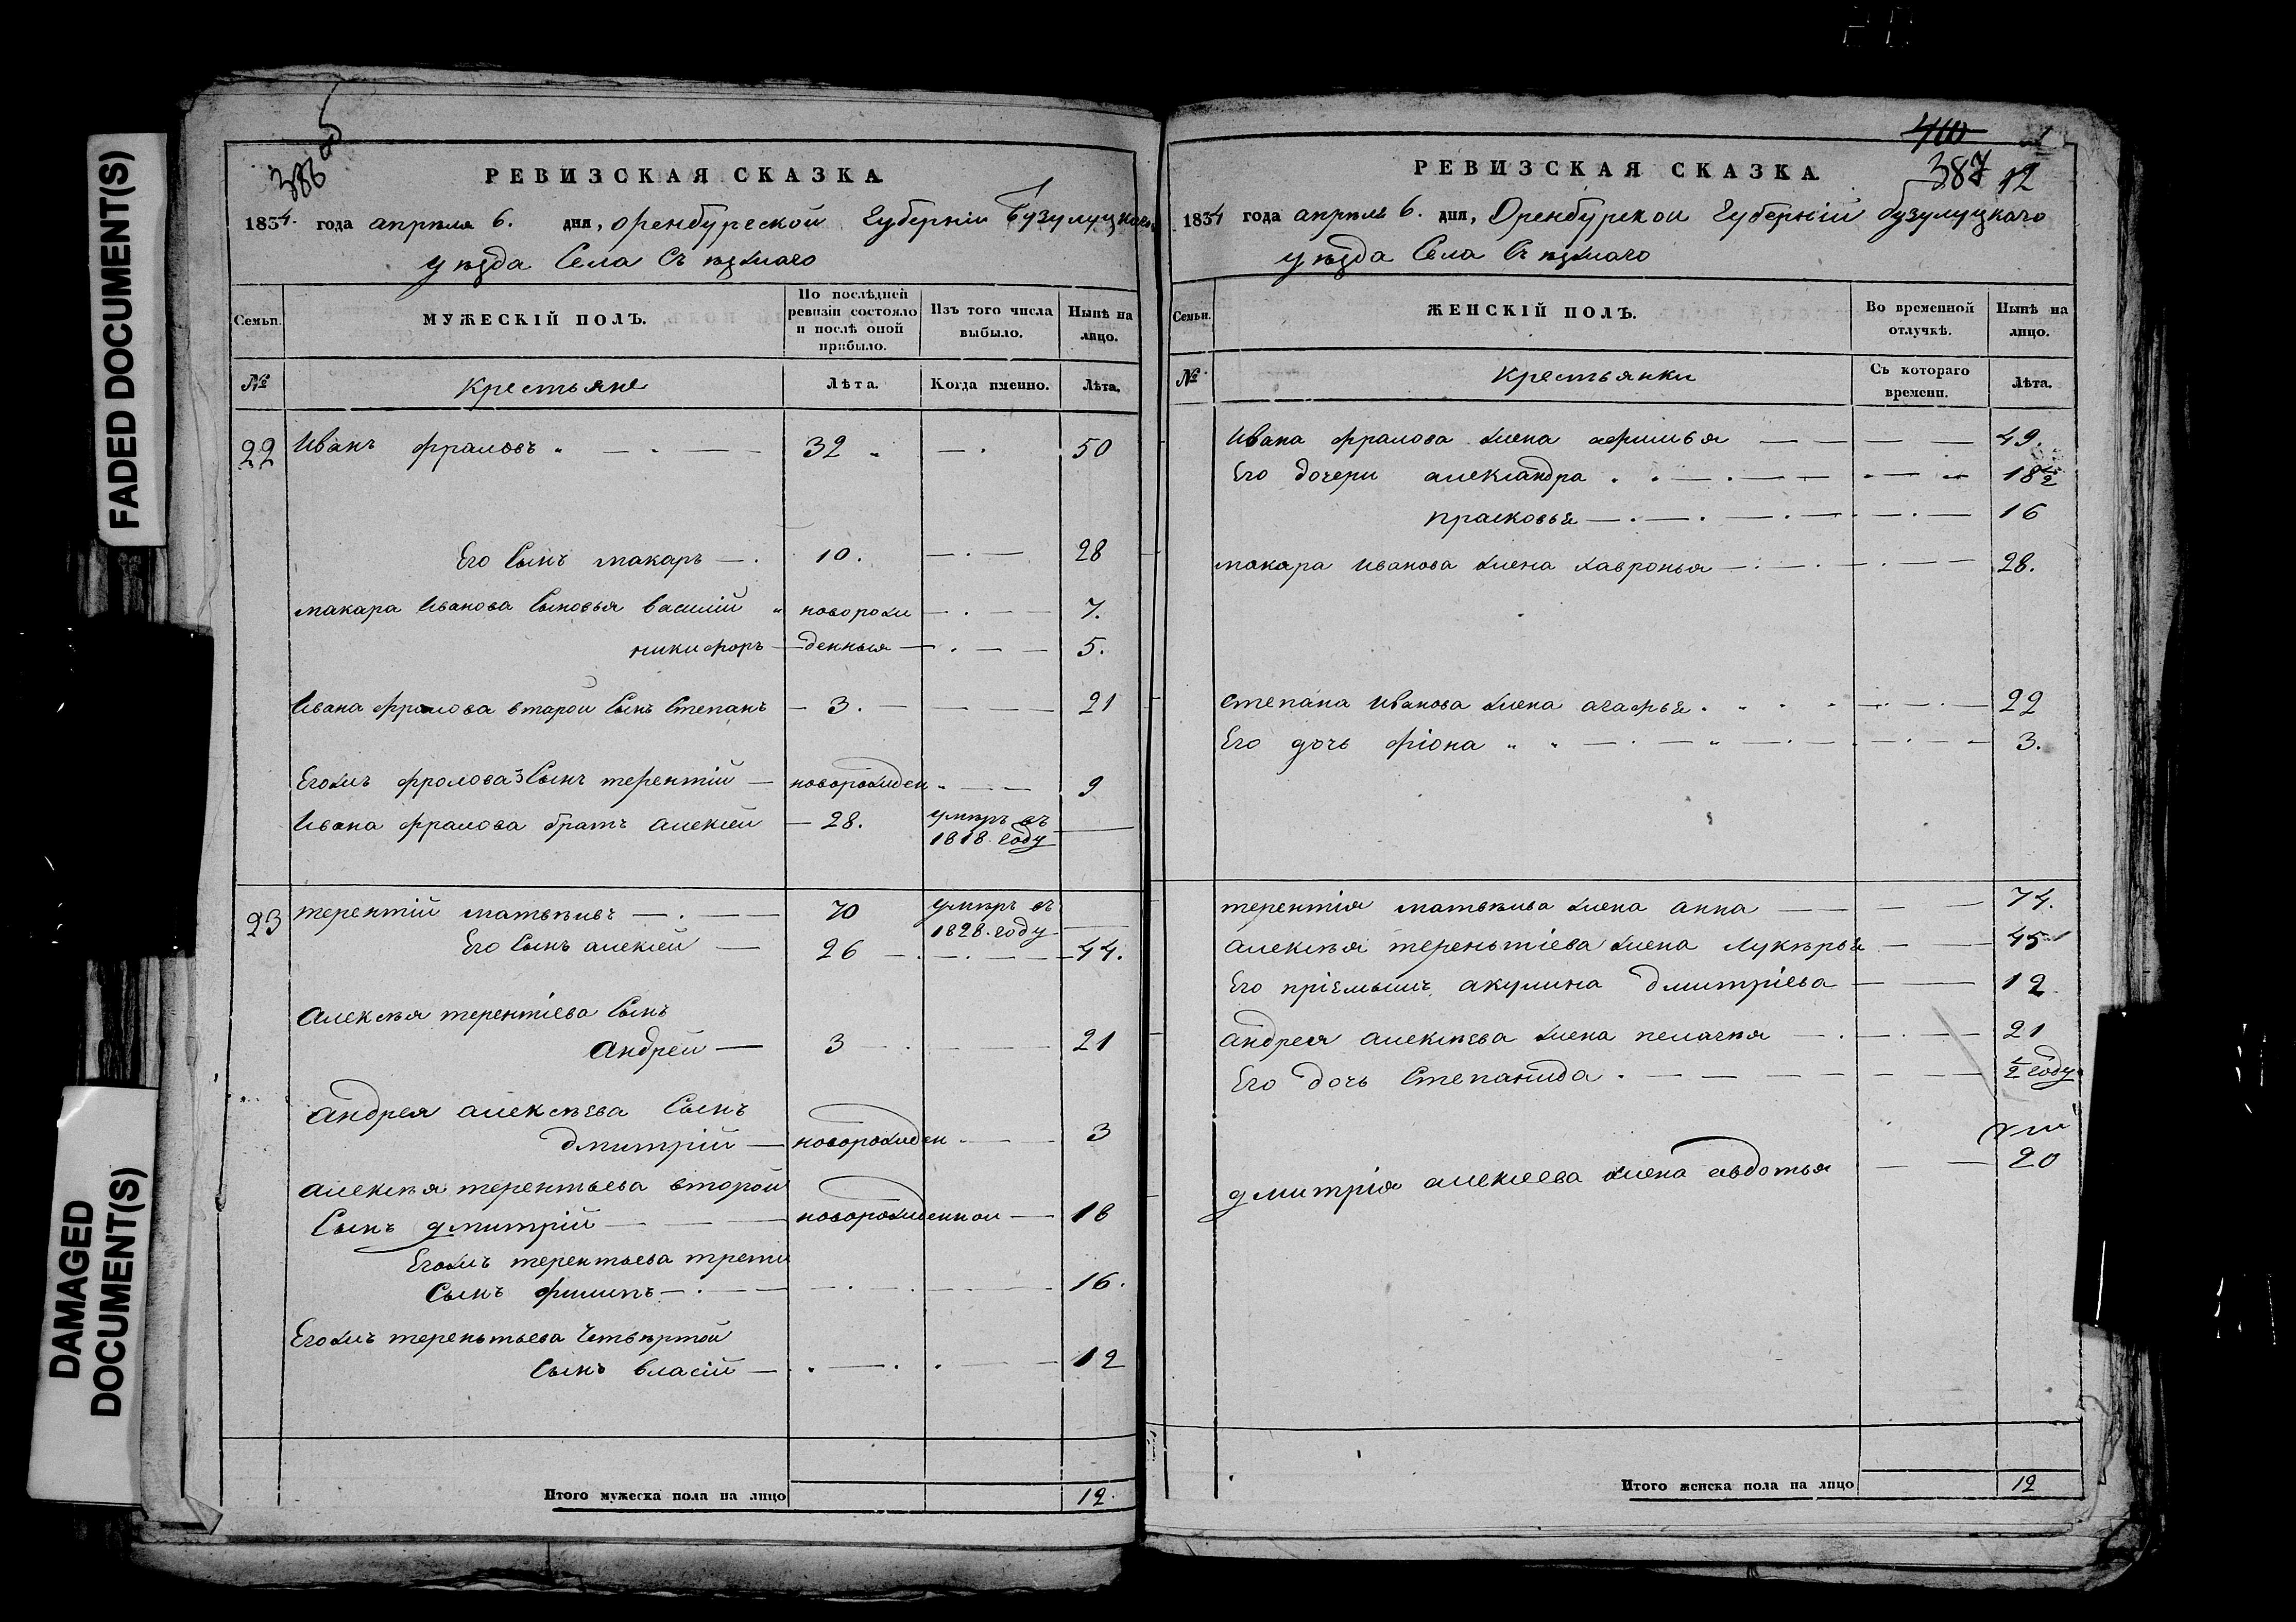 FADED DOCUMENT(S)
DAMAGED
DOCUMENT(S)
386 об
РЕВИЗСКАЯ СКАЗКА
1834. года апреля 6. дня, Оренбургской Губерніи Бузулуцкаго
уѣзда Села Съѣзжаго
Семьи.
МУЖЕСКІЙ ПОЛЪ.
По послѣдней
ревизіи состояло
и послѣ оной
прибыло.
Изъ того числа
выбыло.
Нынѣ на
лицо.
№
Крестьяне
Лѣта.
Когда именно.
Лѣта.
22 Иванъ фраловъ 32 50
Его Сынъ макаръ 10. 28
макара Иванова Сыновья василій новорож 7.
никифоръ денныя 5.
Ивана фралова второй Сынъ Степанъ 3. 21
Егожъ фролова 3 Сынъ терентій новорожден 9
Ивана фралова братъ алексей 28. умѣръ въ
1818 году
23 терентій матвѣивъ 70 умѣръ въ
1828 году
Его Сынъ алексей 26 44.
алексѣя терентіева Сынъ
андрей 3 21
андрея алексѣева Сынъ
дмитрій новорожден 3
алексѣя терентьева второй
Сынъ дмитрій новорожденной 18
Егожъ терентьева трети
Сынъ филипъ 16.
Егожъ терентьева Четвѣртой
Сынъ власій 12
Итого мужеска пола на лицо 12.
410
387 12
РЕВИЗСКАЯ СКАЗКА
1834 года апреля 6. дня, Оренбурской Губерніи бузулуцкаго
уѣзда Села Съѣзжаго
Семьи.
ЖЕНСКІЙ ПОЛЪ.
Во временной
отлучкѣ.
Нынѣ на
лицо.
№
Крестьянки
Съ котораго
времени.
Лѣта.
Ивана фралова жена афимья 49.
Его дочери александра 18 1/2
прасковья 16
макара иванова жена хавронья 28.
степана иванова жена агафья 22
Его дочь фіона 3.
терентія матвѣива жена анна 74.
алексѣя тереньтіева жена Лукѣрья 45
Его пріемышъ акулина дмитріева 12
андрея алексѣева жена пелагия 21
Его дочь Степанида 1/2 году
дмитрія алексеева жена авдотья 20
Итого женска пола на лицо 12